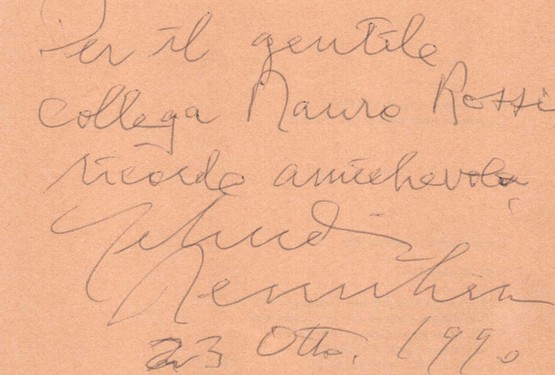 Per il gentile
collega Mauro Rossi
ricordo amichevole
Yehudi
Menuhin
23 Otto. 1990